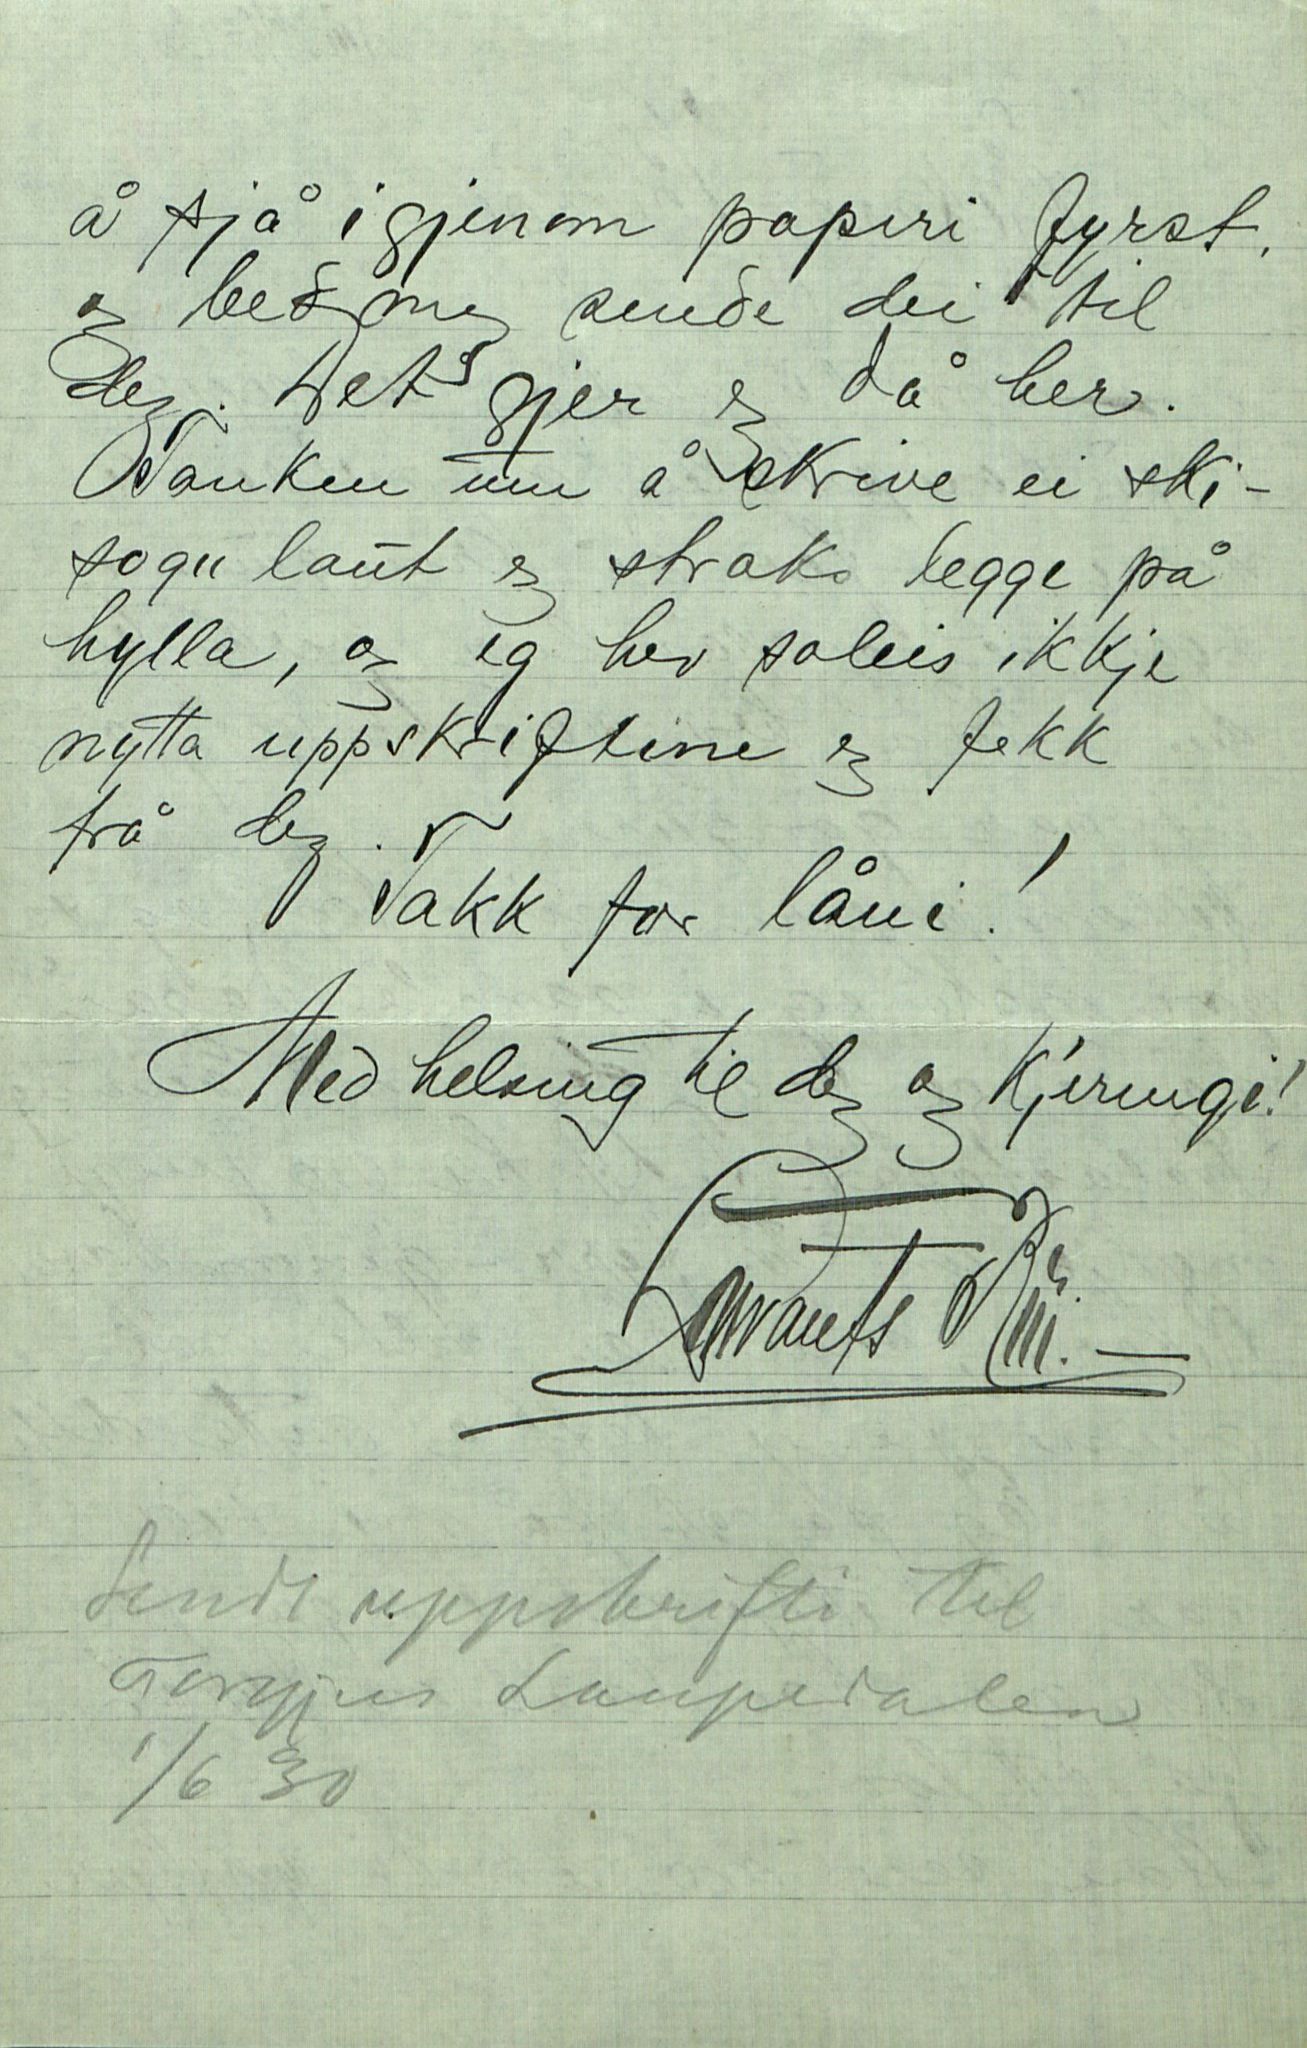 å sjå igjenom papiri fyrst,
og bed meg sende dei til
deg. Det gjer eg då her.
Tanken um å skrive ei ski-
sogu laut eg straks legge på
hylla, og eg hev soleis ikkje
nytta uppskriftine eg fekk
frå deg.
Takk for låni!
Med helsing til deg og Kjeringi!
Sende uppskrifti til
Torgjus Laupedalen
1/6 30